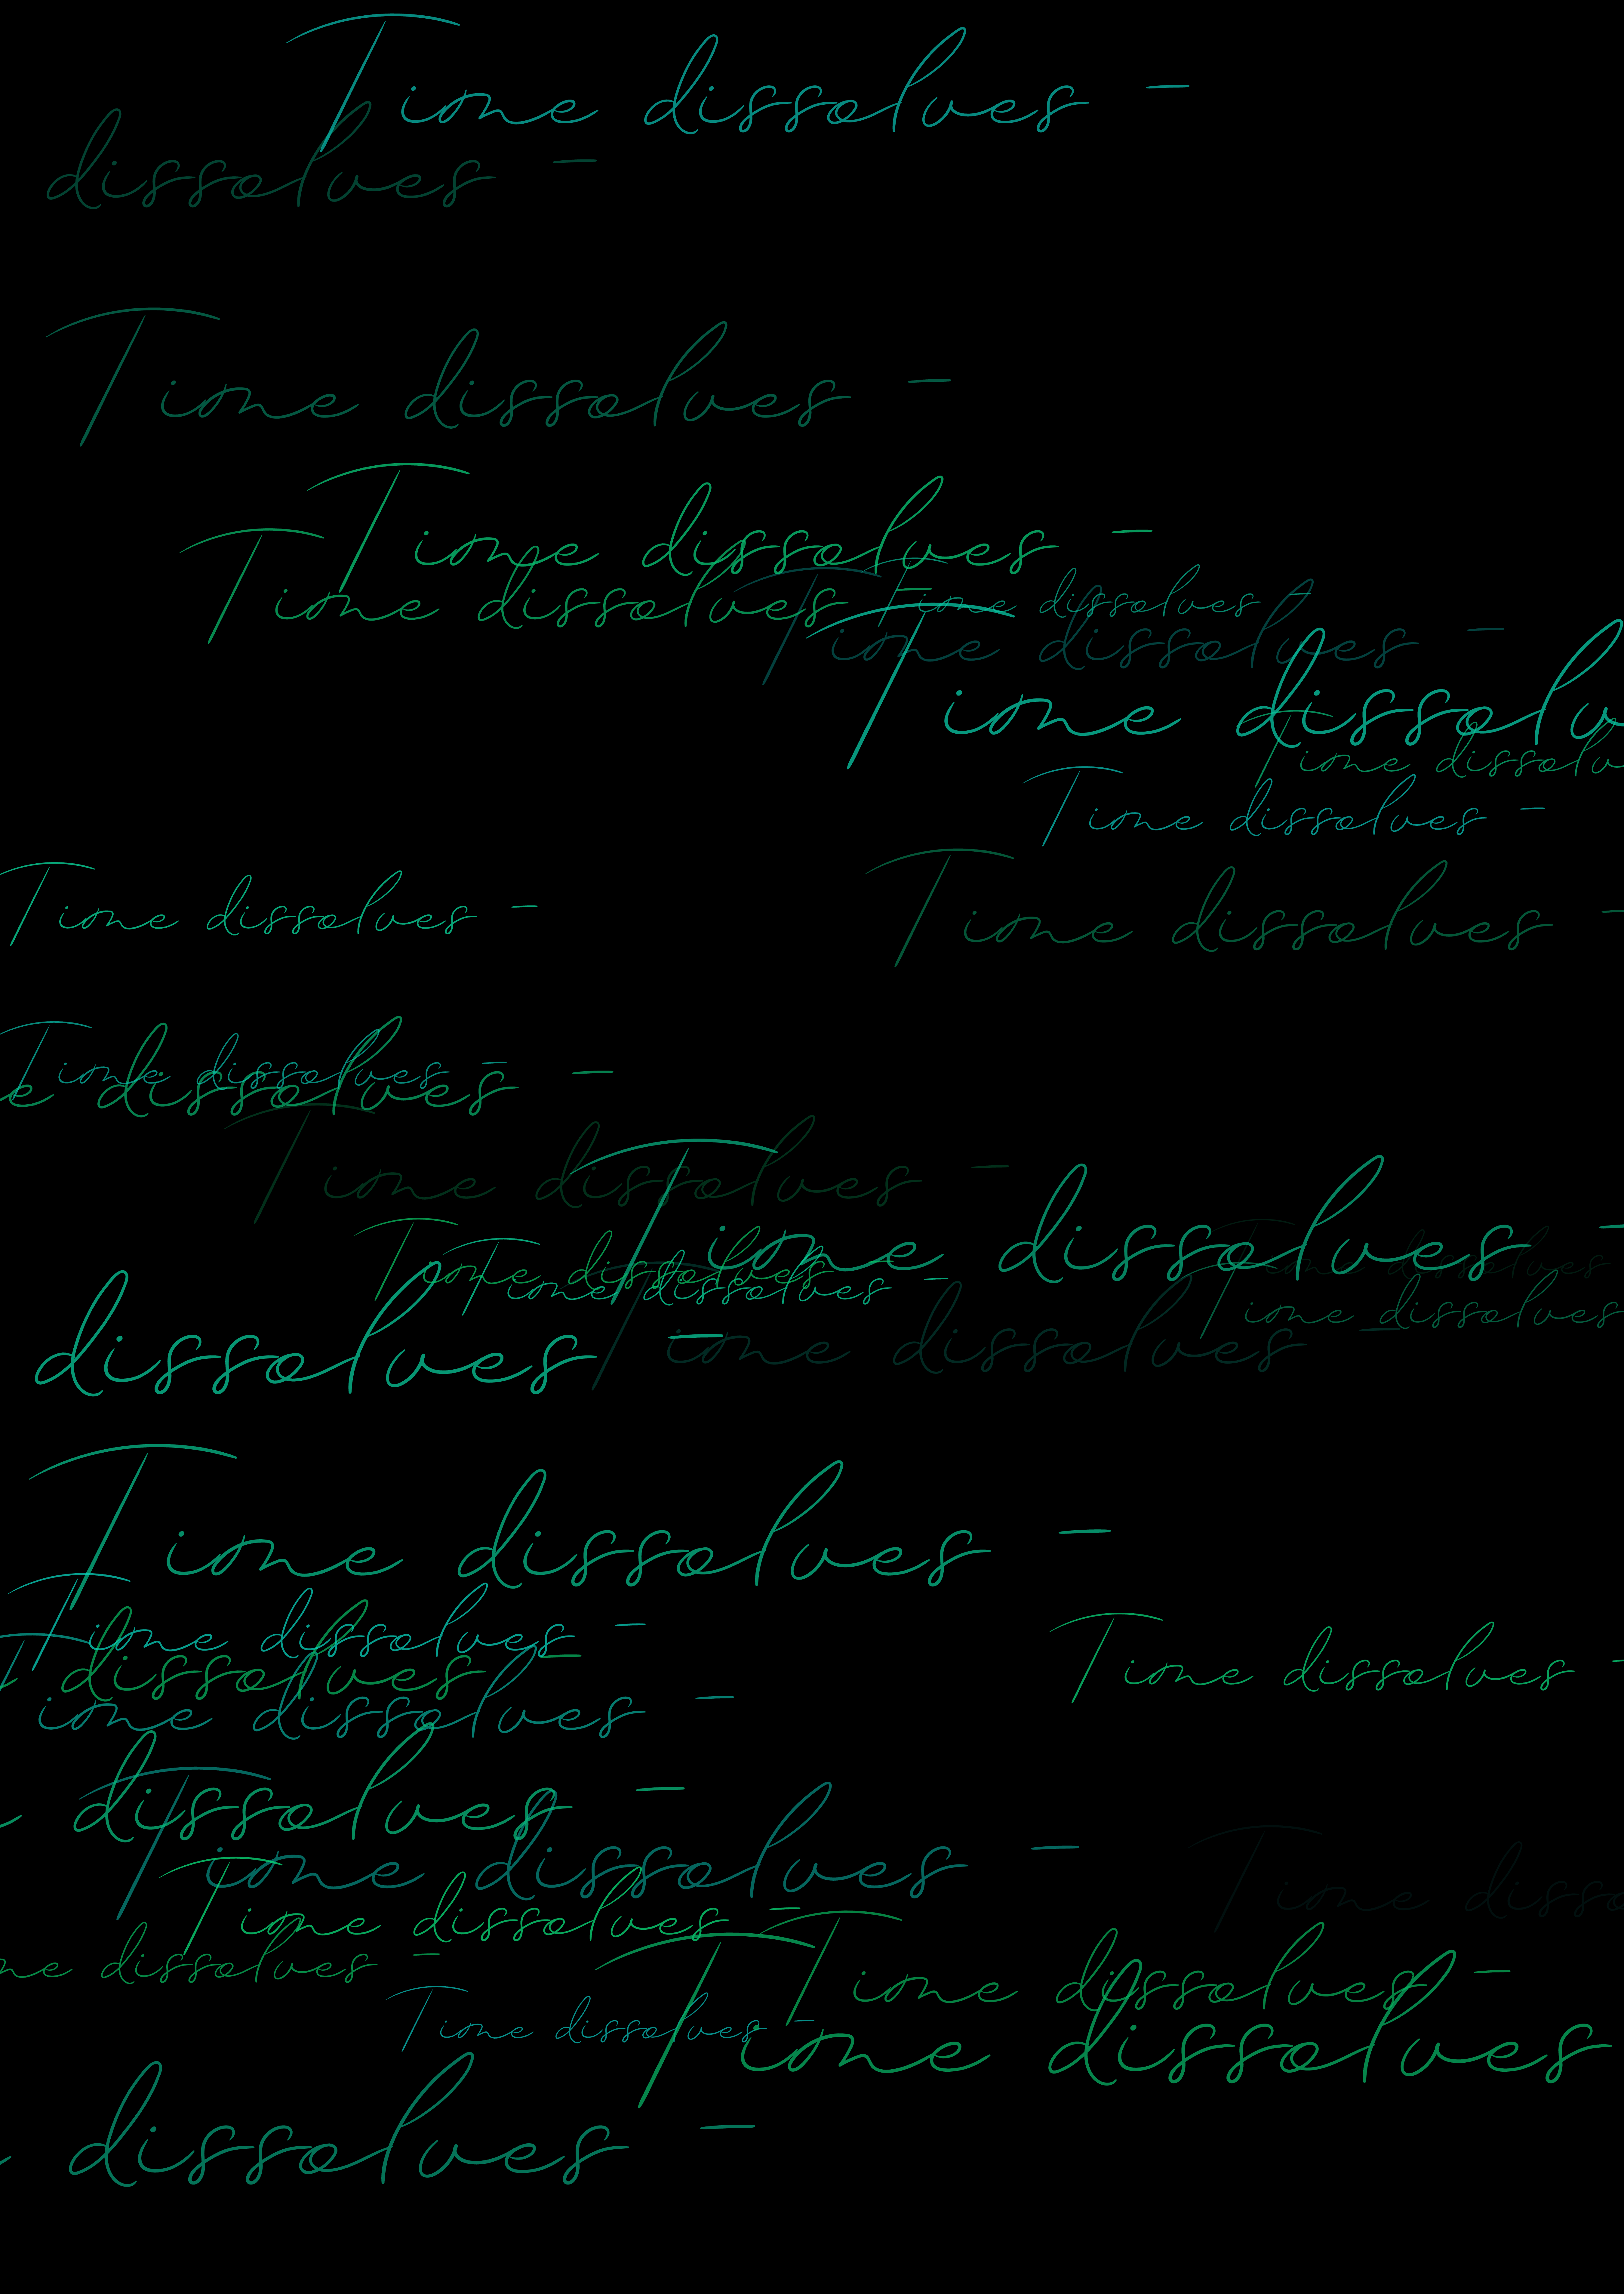 Time dissolves -
dissolves -
Time dissolves -
Time dissolves -
Time dissolves -
Time dissolves -
Time dissolves -
Time dissolv
Time dissolv
Time dissolves -
Time dissolves -
Time dissolves -
Time dissolves -
e dissolves -
Time dissolves -
Time dissolves -
Time dissolves -
Time dissolves
Time dissolves -
Time dissolves
dissolves -
Time dissolves -
Time dissolves -
Time dissolves -
Time dissolves -
dissolves -
Time dissolves -
dissolves -
Time dissolves -
Time disso
Time dissolves -
me dissolves -
Time dissolves -
Time dissolves -
Time dissolves
dissolves -